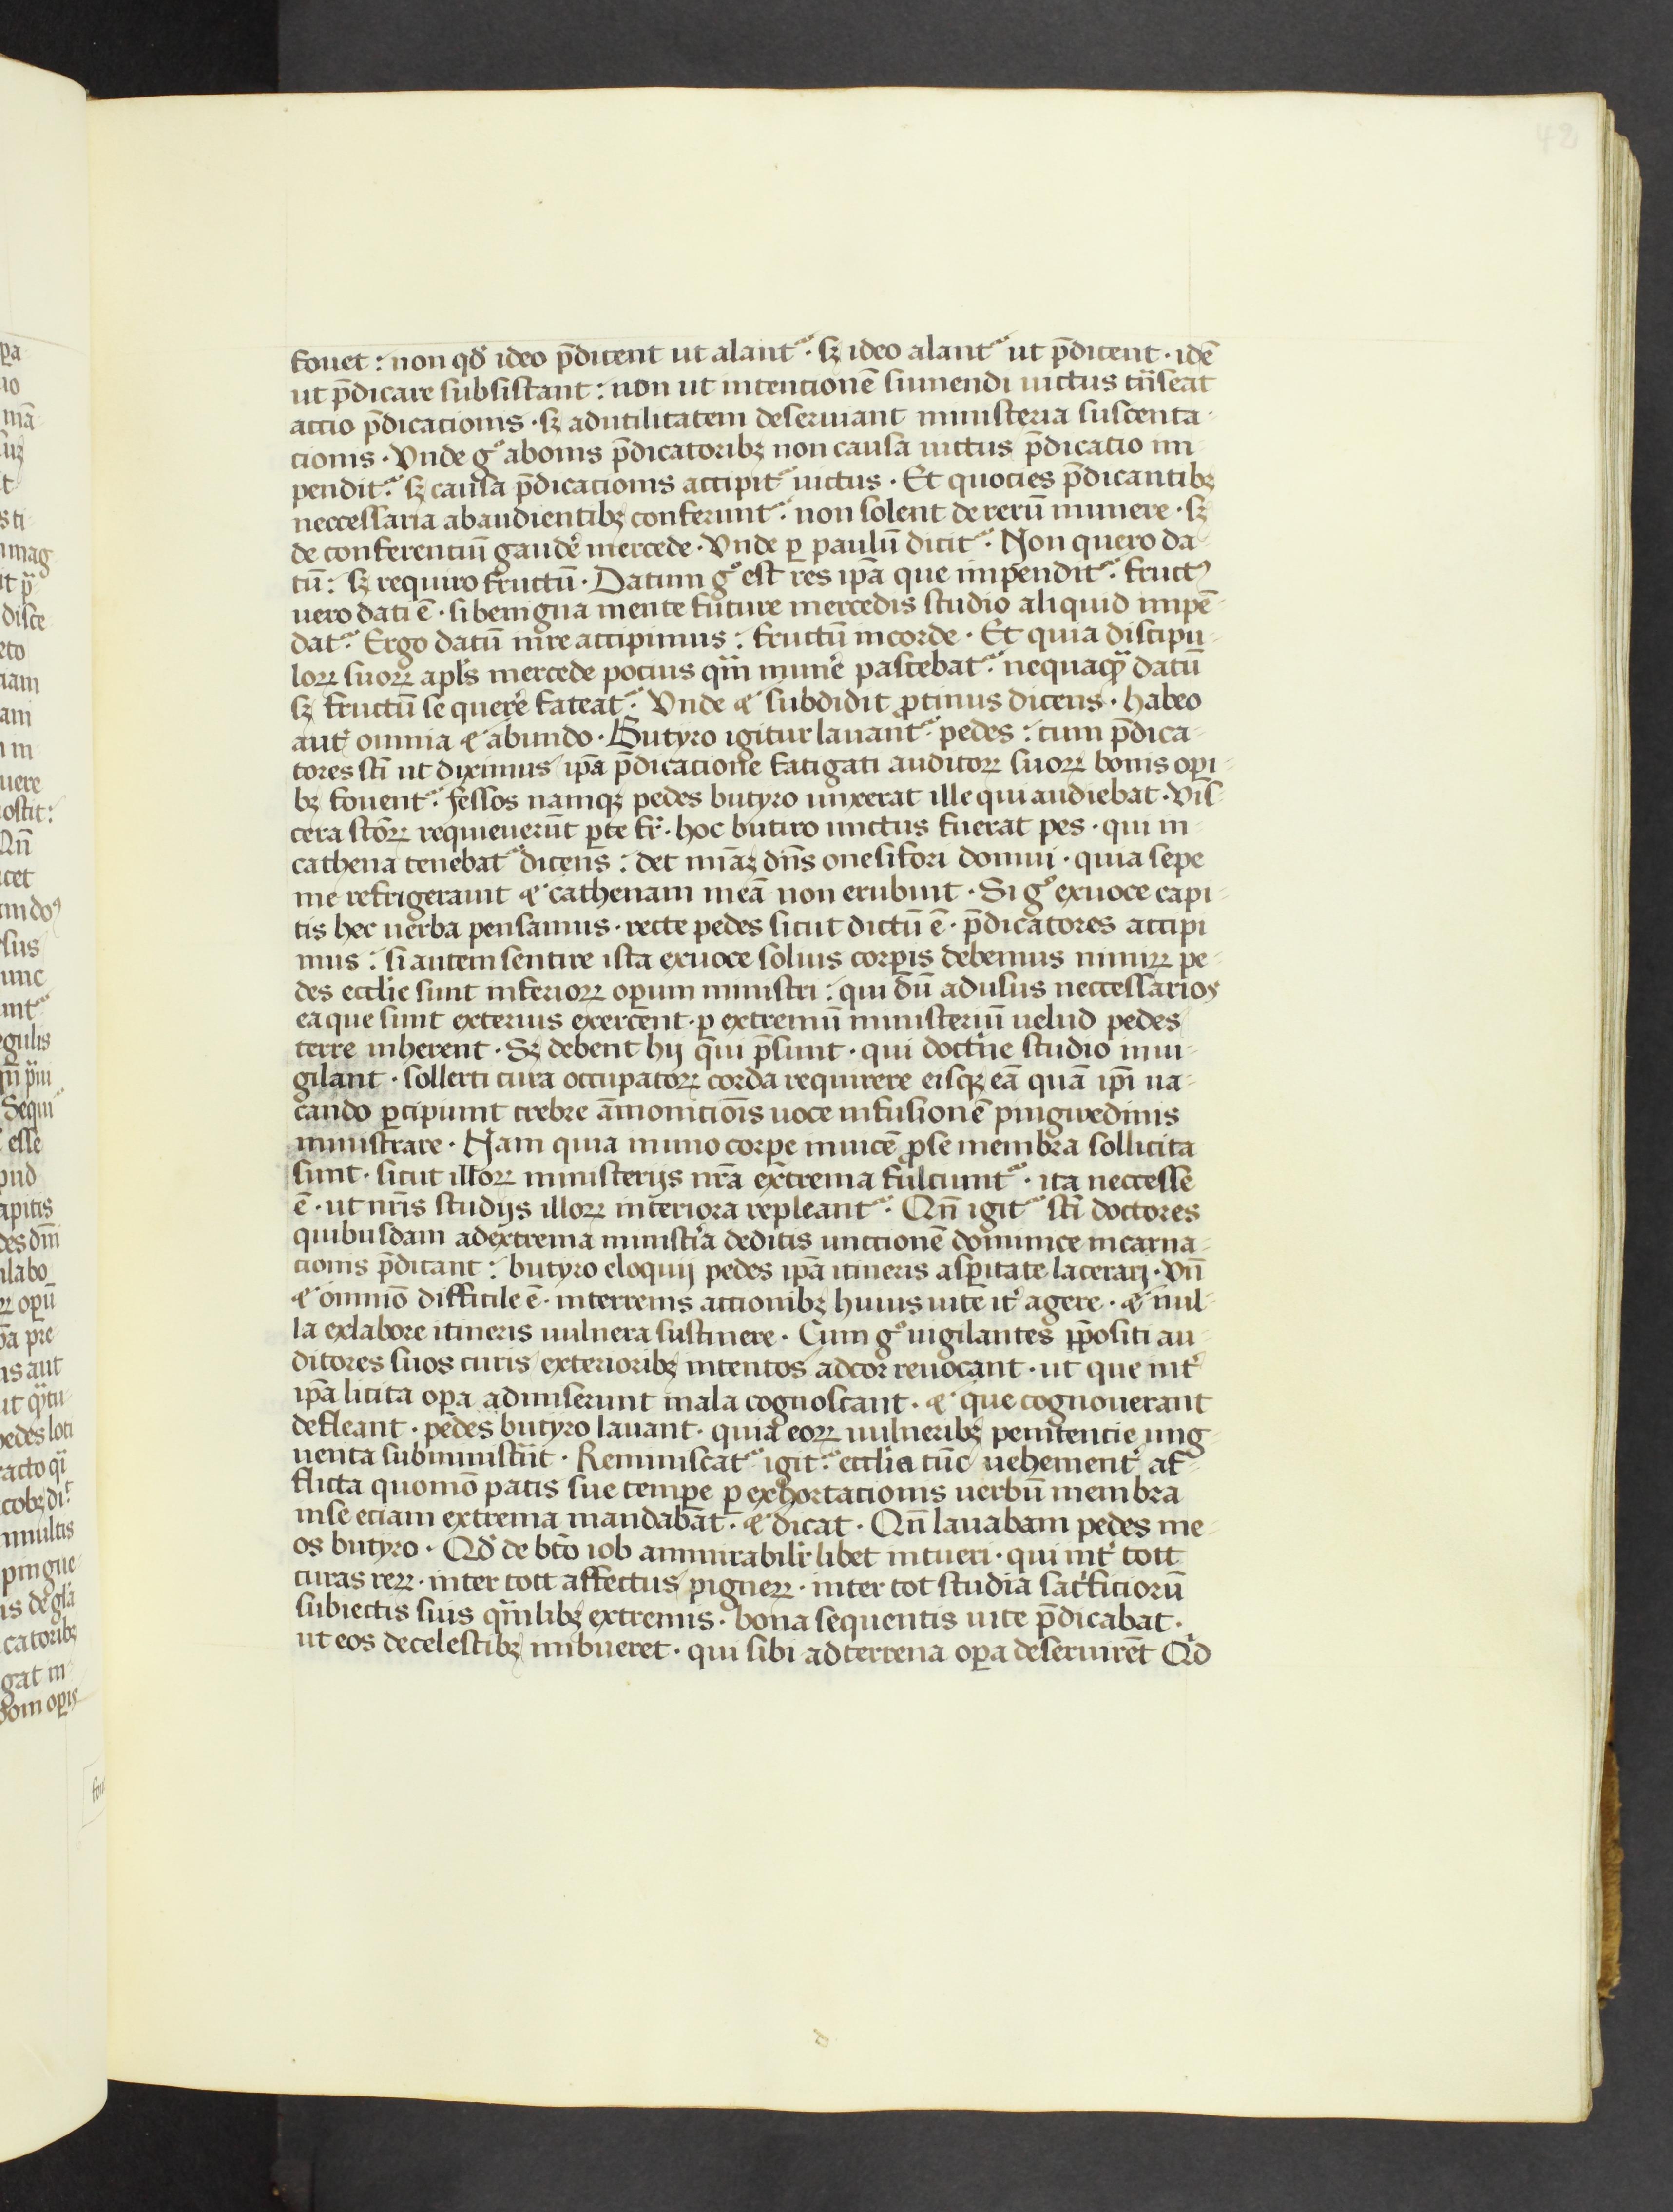 42
fouet : non qđ ideo p̄dicent ut alant᷑ · sꝫ ideo alant᷑ ut p̄dicent · idē
ut p̄dicare subsistant : non ut intencionē sumendi uictus tñseat
actio p̄dicacionis · sꝫ adutilitatem deseruiant ministeria sustenta-
cionis · Vnde gͦ abonis p̄dicatoribꝫ non causa uictus p̄dicatio im-
pendit᷑ · sꝫ causa p̄dicacionis accipit᷑ uictus · Et quocies p̄dicantibꝫ
neccessaria abaudientibꝫ conferunt᷑ · non solent de rerū munere · sꝫ
de conferentiū gaudēr mercede · Vnde ꝑ paulū dicit᷑ · Non quero da-
tū : sꝫ requiro fructū · Datum gͦ est res ip̄a que impendit᷑ · fructꝰ
uero dati ē · si benigna mente future mercedis studio aliquid impē-
dat᷑ · Ergo datū inre accipimus : fructū incorde · Et quia discipu-
loꝝ suoꝝ apl̄s mercede pocius qm̄ munēr pascebat᷑ · nequaqꝫ datū
sꝫ fructū se querēr fateat᷑ · Vnde ⁊ subdidit ꝓtinus dicens · habeo
aut̄ omnia ⁊ abundo · Butyro igitur lauant᷑ pedes : cum p̄dica-
tores sc̄i ut diximus ip̄a p̄dicacione fatigati auditoꝝ suoꝝ bonis opi-
bꝫ fouent᷑ · fessos namqꝫ pedes butyro unxerat ille qui audiebat · Vis-
cera sc̄oꝝ requieuerūt ꝑ te fr̄ · hoc butiro unctus fuerat pes · qui in
cathena tenebat᷑ dicens : det mīaꝫ dn̄s onesifori domui · quia sepe
me refrigerauit ⁊ cathenam meā non erubuit · Si gͦ exuoce capi-
tis hec uerba pensamus · recte pedes sicut dictū ē · p̄dicatores accipi
mus : si autem sentire ista exuoce solius corꝑis debemus nimiꝝ pe-
des eccl̄ie sunt inferioꝝ oꝑum ministri : qui dū adusus neccessarios
ea que sunt exterius exercent · ꝑ extremū ministeriū uelud pedes
terre inherent · Sꝫ debent hij qui p̄sunt · qui doctrīne studio inui-
gilant · sollerti cura occupatoꝝ corda requirere eisqꝫ eā quā ip̄i ua-
cando ꝑcipiunt crebre āmonicōis uoce infusionē pinguedinis
ministrare · Nam quia inuno corꝑe inuicē ꝓse membra sollicita
sunt · sicut illoꝝ ministerijs nr̄a extrema fulciunt᷑ · ita neccesse
ē · ut nr̄is studijs illoꝝ interiora repleant᷑ · Qn̄ igit᷑ sc̄i doctores
quibusdam adextrema ministīra deditis unctionē dominice incarna-
cionis p̄dicant : butyro eloquij pedes ip̄a itineris asꝑitate lacerarj · Vn̄
⁊ omnīo difficile ē · interrenis actionibꝫ huius uite it̄ agere · ⁊ nul-
la exlabore itineris uulnera sustinere · Cum gͦ uigilantes p̄positi au-
ditores suos curis exterioribꝫ intentos adcor reuocant · ut que int̄
ip̄a licita oꝑa admiserunt mala cognoscant · ⁊ que cognouerant
defleant · pedes butyro lauant · quia eoꝝ uulneribꝫ penitencie ung-
uenta subministrīt · Reminiscat᷑ igit᷑ eccl̄ia tūc uehement̄ af-
flicta quomō pacis sue tempe ꝑ exhortacionis uerbū membra
inse eciam extrema mandabat · ⁊ dicat · Qn̄ lauabam pedes me-
os butyro · Qđ de bt̄o iob ammirabilr̄ libet intueri · qui int̄ tott
curas reꝝ · inter tott affectus pigneꝝ · inter tot studia sacrificiorū
subiectis suis qm̄libꝫ extremis · bona sequentis uite p̄dicabat ·
ut eos decelestibꝫ imbueret · qui sibi adterrena oꝑa deseruirēt Qđ